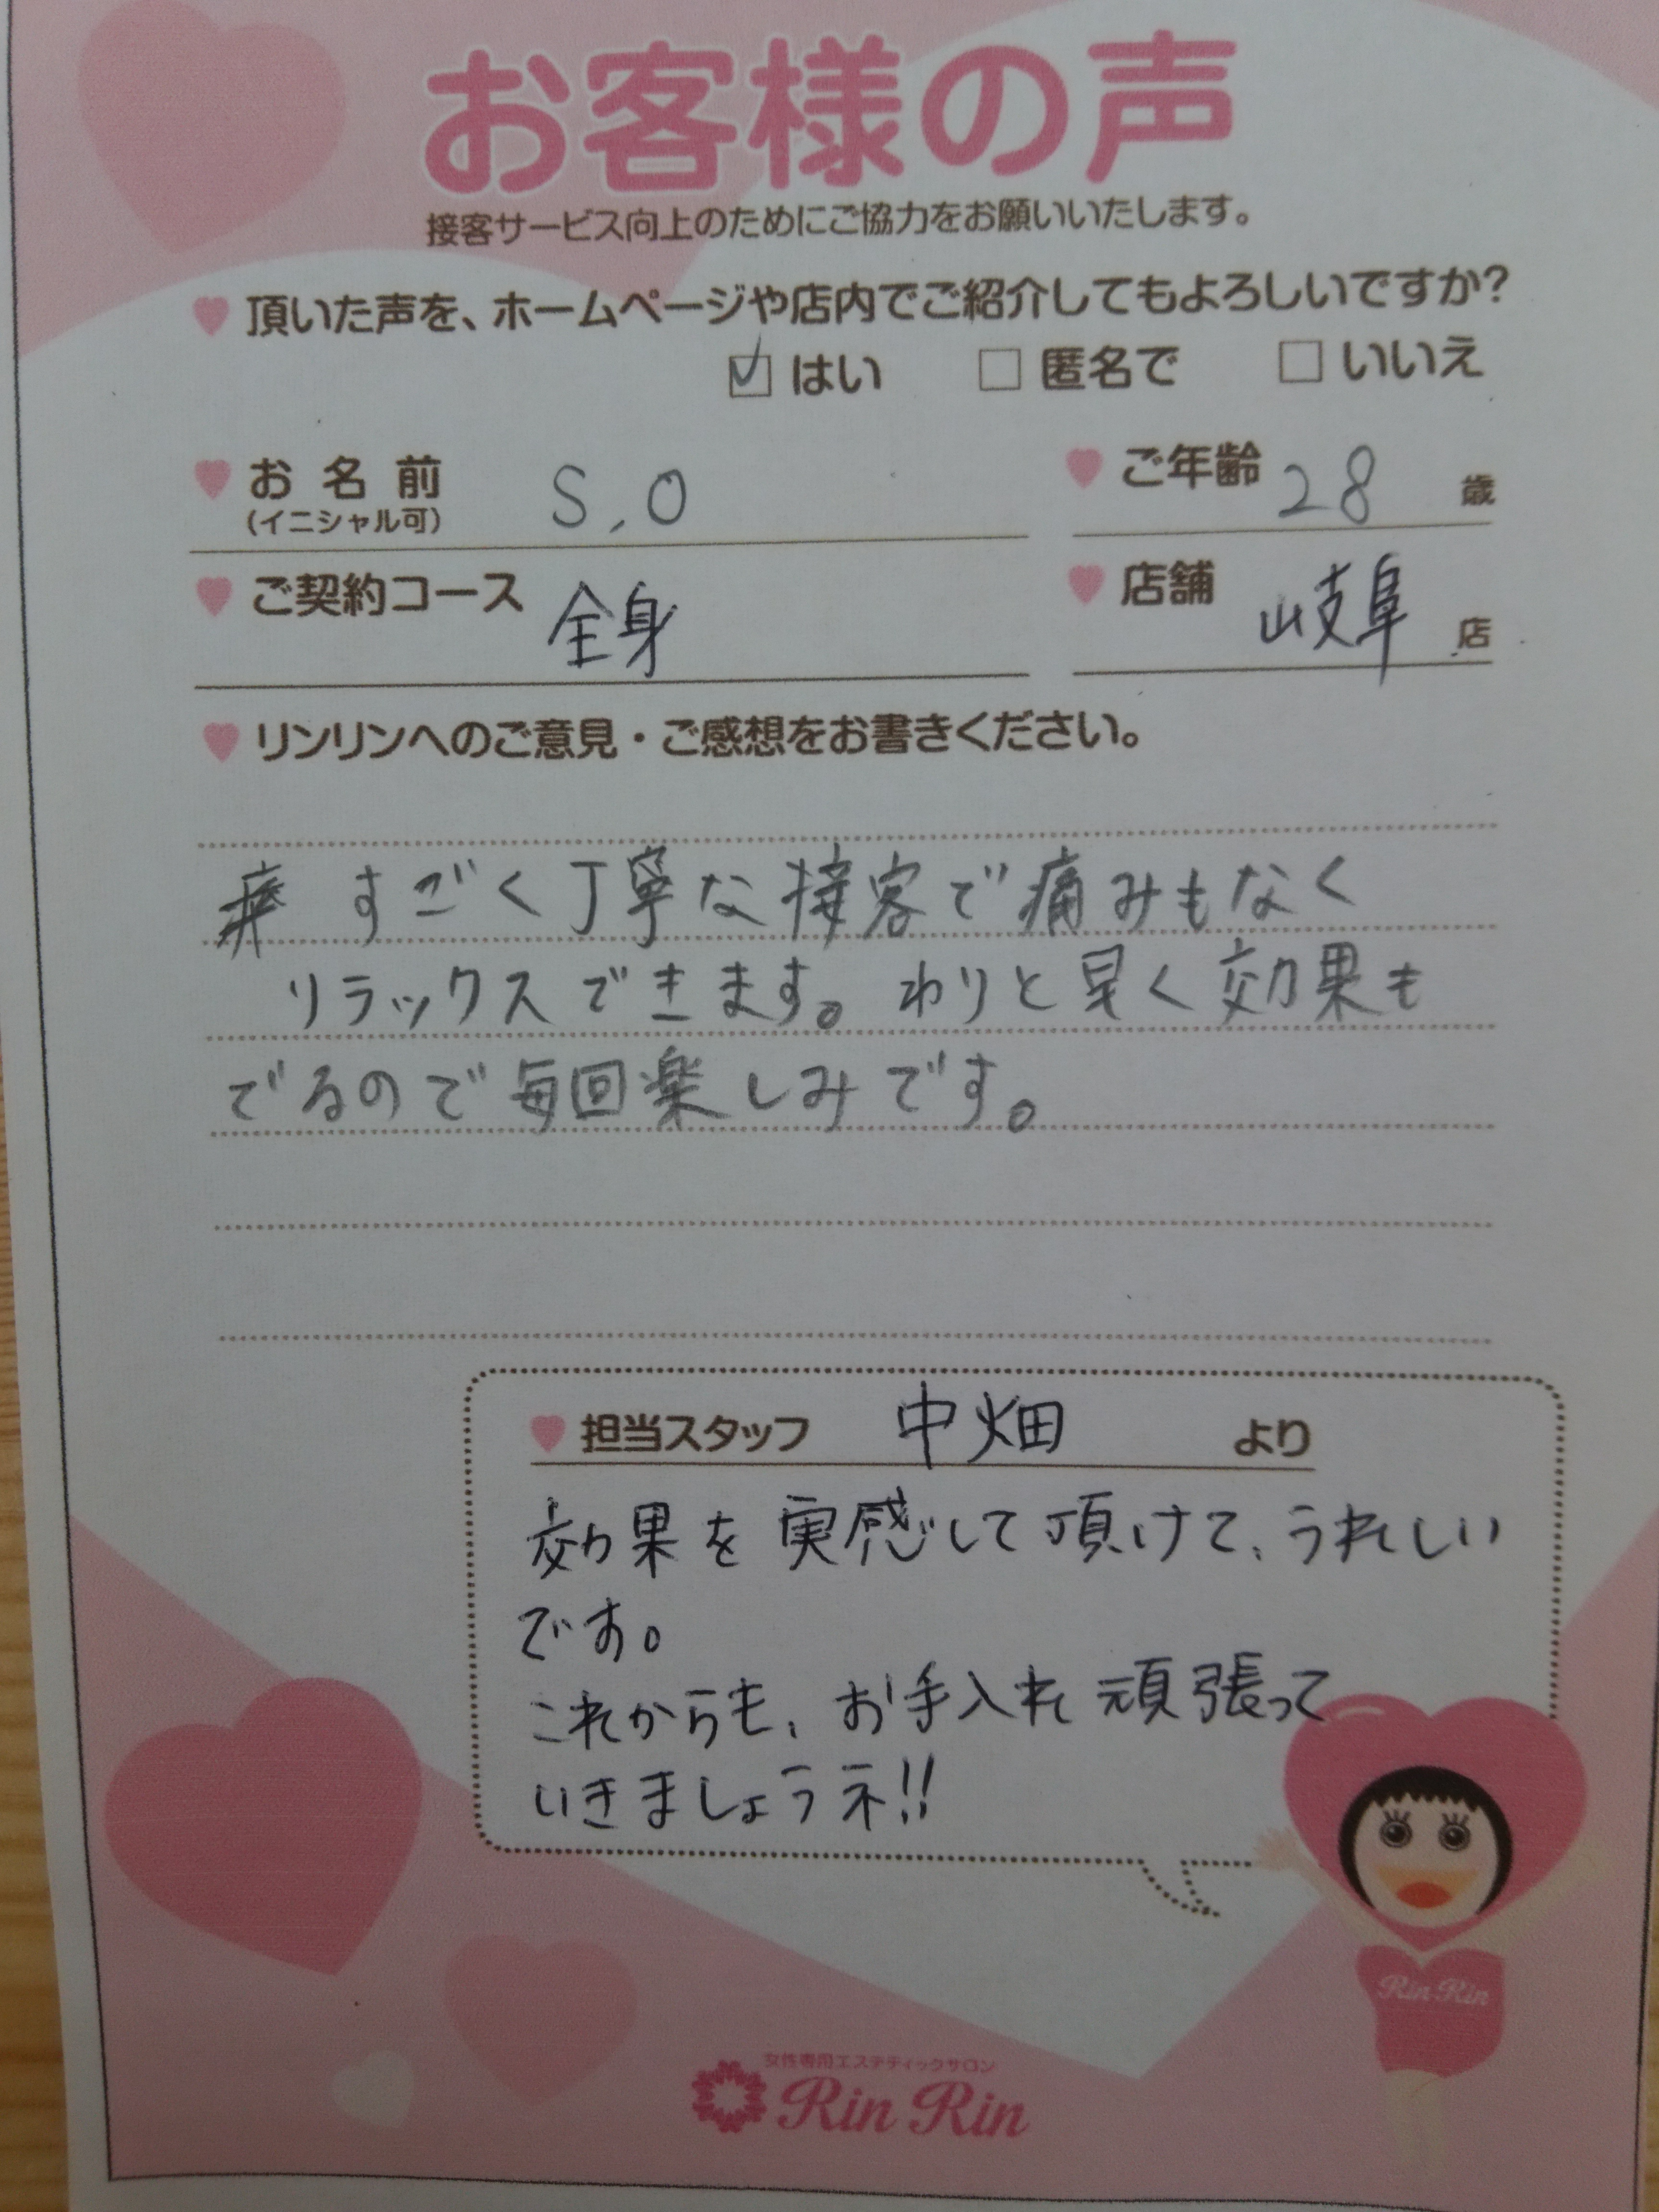 お客様の声
接客サービス向上のためにご協力をお願いいたします。
頂いた声を、ホームページや店内でご紹介してもよろしいですか?
はい 匿名で いいえ
お名前 S.O ご年齢 28 歳
(イニシャル可)
ご契約コース 全身 店舗 岐阜 店
リンリンへのご意見・ご感想をお書きください。
すごく丁寧な接客で痛みもなく
リラックスできます。わりと早く効果も
でるので毎回楽しみです。
担当スタッフ 中畑 より
効果を実感じして頂けて、うれしい
です。
これからも、お手入れ頑張って
いきましょうネ!!
Rin Rin
女性専用エステティックサロン
Rin Rin